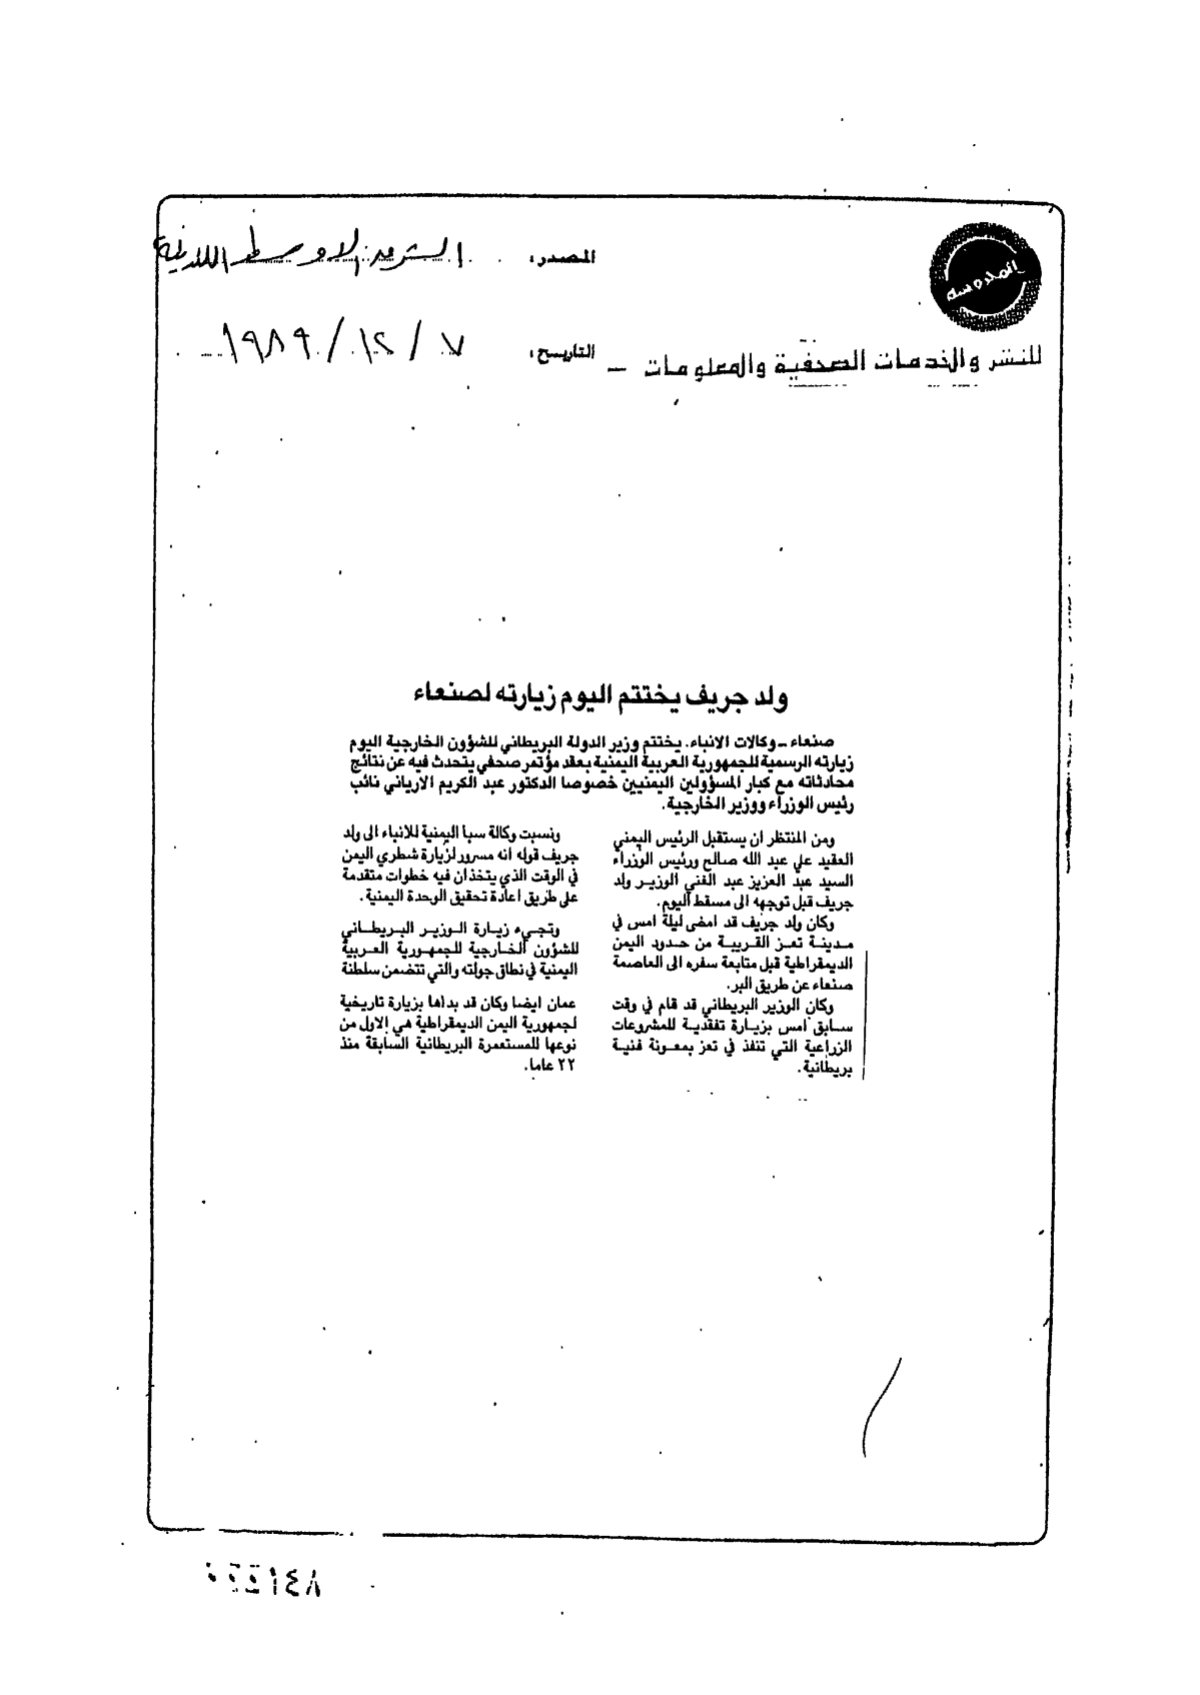 المحروسة
للنشر والخدمات الصحفية والمعلومات -
المصدر: الشرق الاوسط اللندنية
التاريخ: ٧ / ١٢ / ١٩٨٩
ولد جريف يختتم اليوم زيارته لصنعاء
صنعاء - وكالات الانباء. يختتم وزير الدولة البريطاني للشؤون الخارجية اليوم
زيارته الرسمية للجمهورية العربية اليمنية بعقد مؤتمر صحفي يتحدث فيه عن نتائج
محادثاته مع كبار المسؤولين اليمنيين خصوصا الدكتور عبد الكريم الارياني نائب
رئيس الوزراء ووزير الخارجية.
ومن المنتظر ان يستقبل الرئيس اليمني
العقيد علي عبد الله صالح ورئيس الوزراء
السيد عبد العزيز عبد الغني الوزير ولد
جريف قبل توجهه الى مسقط اليوم.
وكان ولد جريف قد امضى ليلة امس في
مدينة تعز القريبة من حدود اليمن
الديمقراطية قبل متابعة سفره الى العاصمة
صنعاء عن طريق البر.
وكان الوزير البريطاني قد قام في وقت
سابق امس بزيارة تفقدية للمشروعات
الزراعية التي تنفذ في تعز بمعونة فنية
بريطانية.
ونسبت وكالة سبا اليمنية للانباء الى ولد
جريف قوله انه مسرور لزيارة شطري اليمن
في الوقت الذي يتخذان فيه خطوات متقدمة
على طريق اعادة تحقيق الوحدة اليمنية.
وتجيء زيارة الوزير البريطاني
للشؤون الخارجية للجمهورية العربية
اليمنية في نطاق جولته والتي تتضمن سلطنة
عمان ايضا وكان قد بداها بزيارة تاريخية
لجمهورية اليمن الديمقراطية هي الاول من
نوعها للمستعمرة البريطانية السابقة منذ
٢٢ عاما.